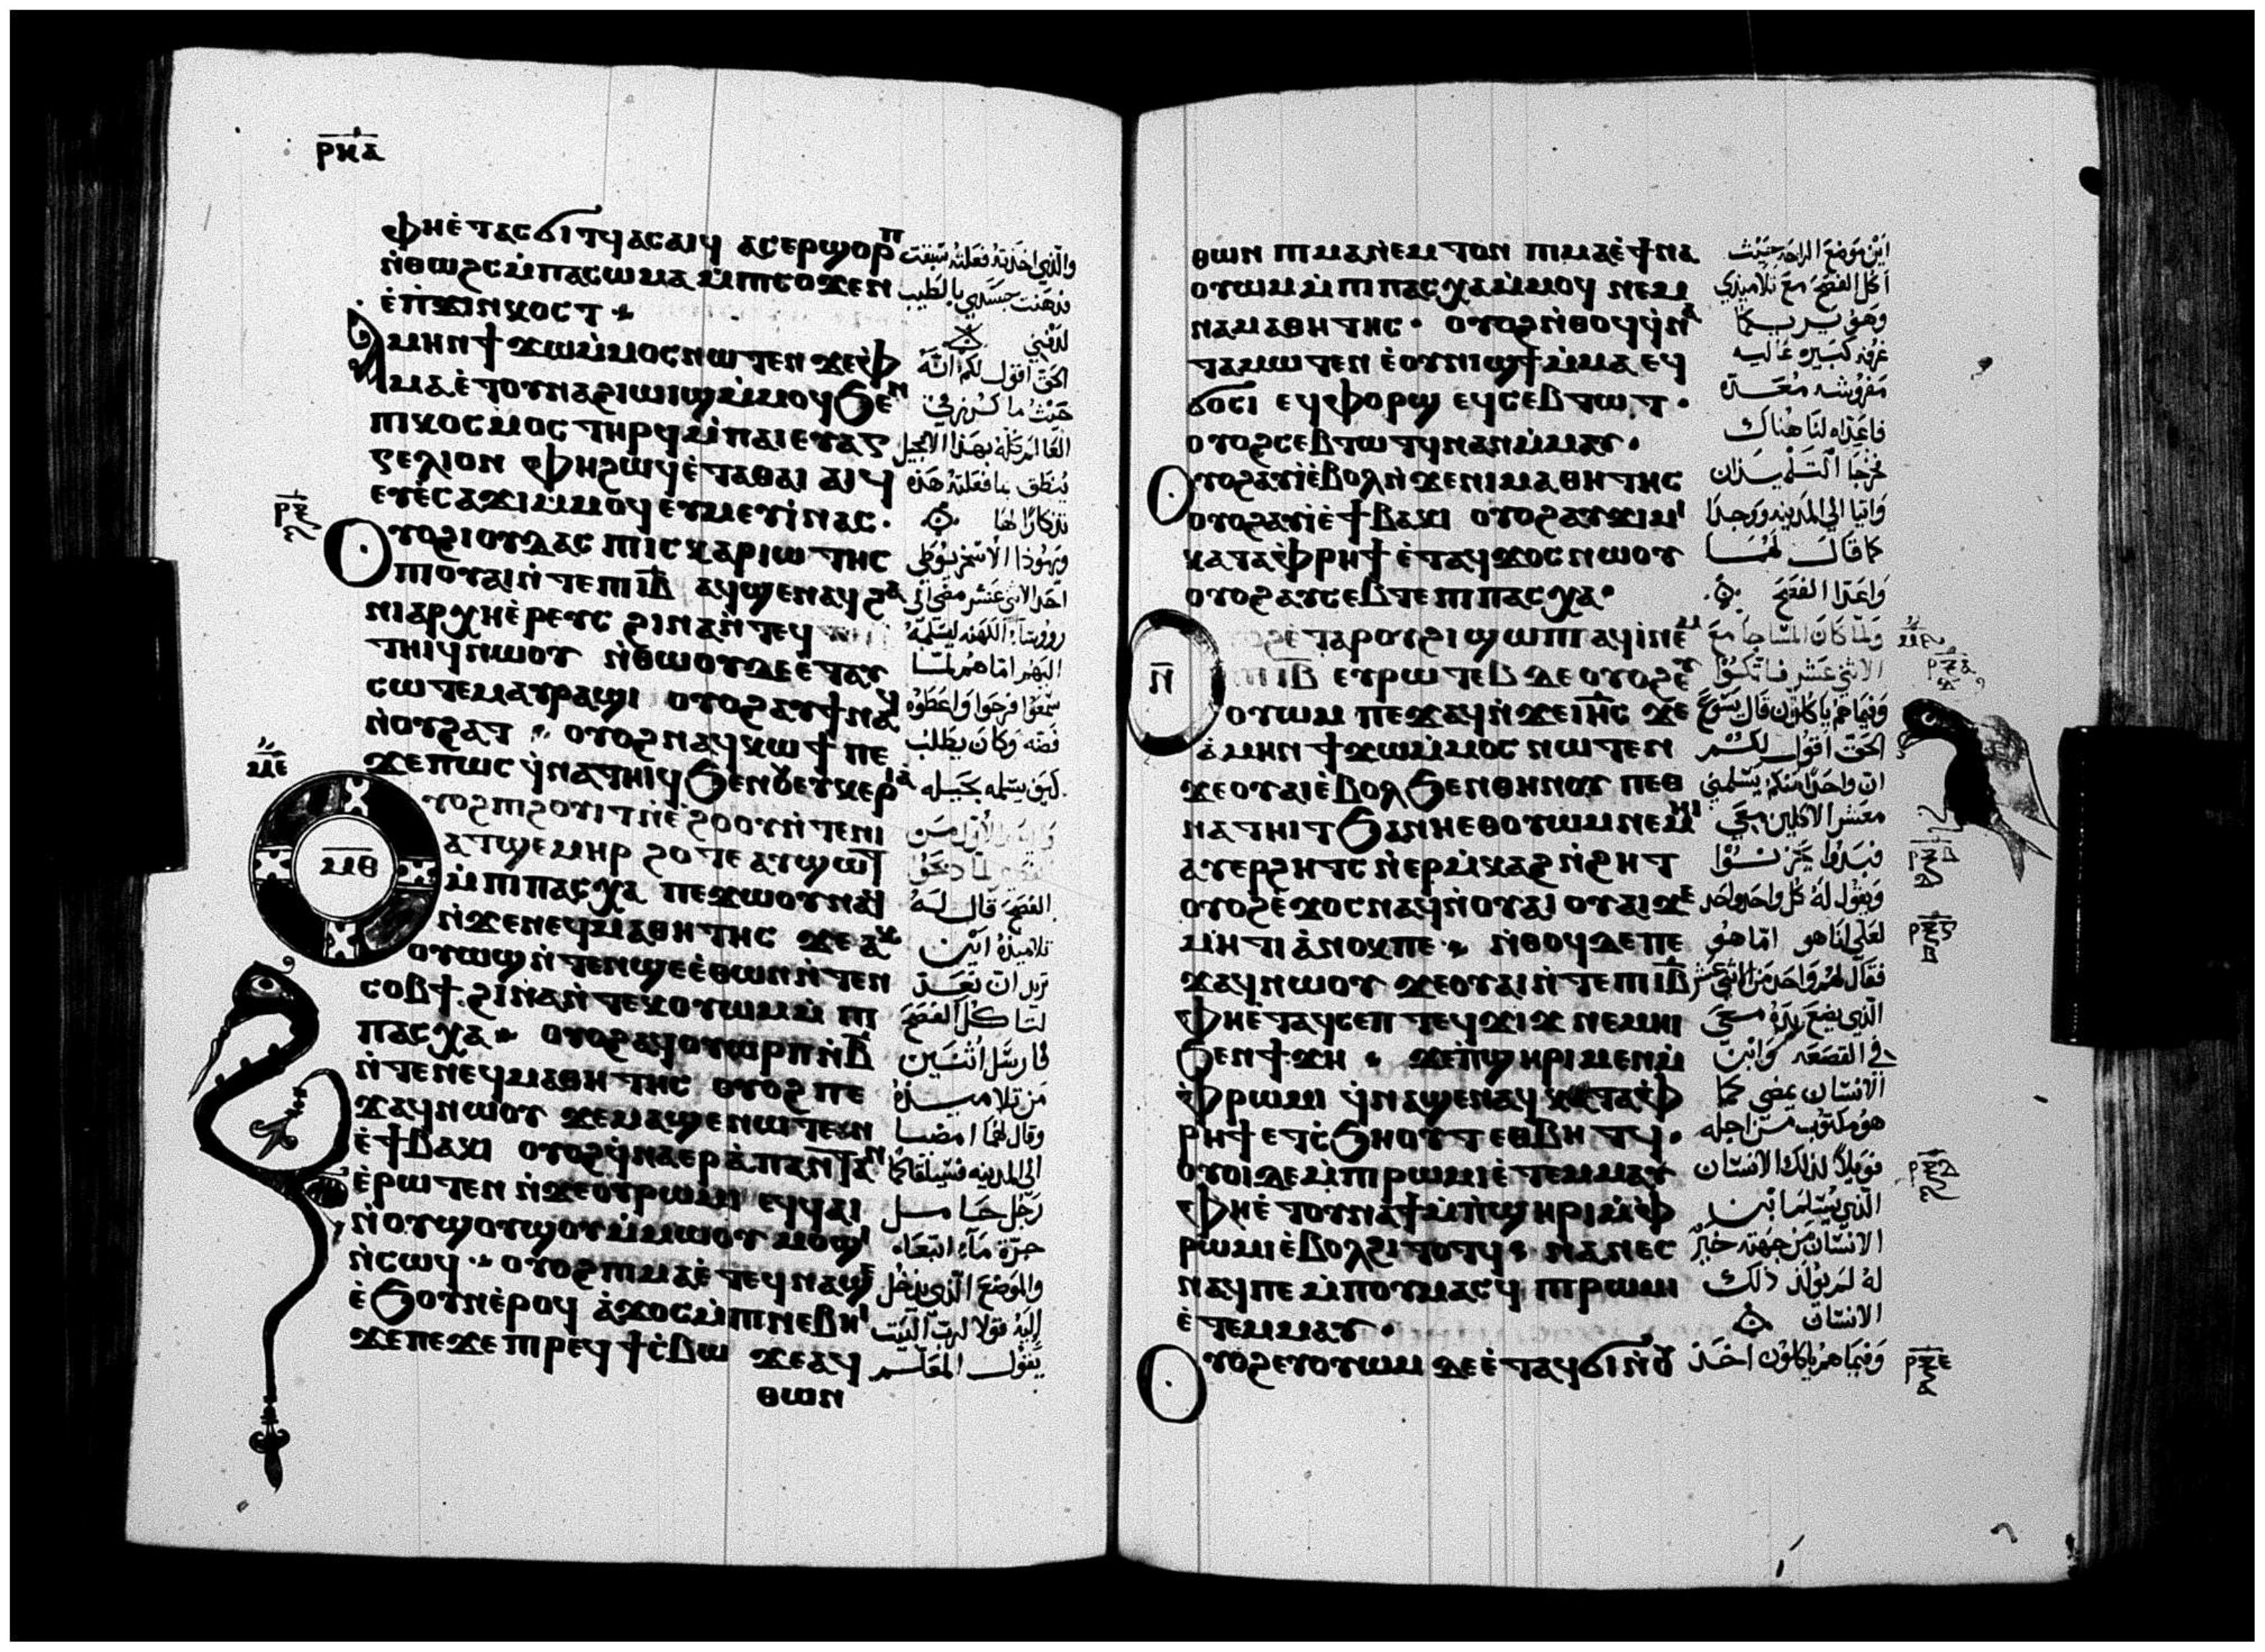 ⲣⲛⲁ
ⲫⲏⲉ̀ⲧⲁⲥϭⲓⲧϥ ⲁⲥⲁⲓϥ ⲁⲥⲉⲣϣⲟⲣⲡ
ⲛ̀ⲑⲱϩⲥ ⲙ̀ⲡⲁⲥⲱⲙⲁ ⲙ̀ⲡⲓⲥⲟϫⲉⲛ
ⲉ̀ⲡ̀ϫⲓⲛⲕⲟⲥⲧ
ⲁⲙⲏⲛ ϯϫⲱⲙ̀ⲙⲟⲥ ⲛⲱⲧⲉⲛ ϫⲉⲫ̀
ⲙⲁ ⲉ̀ⲧⲟⲩⲛⲁϩⲓⲱⲓϣ ⲙ̀ⲙⲟϥ ϧⲉⲛ
ⲡⲓⲕⲟⲥⲙⲟⲥ ⲧⲏⲣϥ ⲙ̀ⲡⲁⲓⲉⲩⲁⲅ
ⲅⲉⲗⲓⲟⲛ ⲫⲏϩⲱϥ ⲉ̀ⲧⲁⲑⲁⲓ ⲁⲓϥ
ⲉⲩⲉ̀ⲥⲁϫⲓ ⲙ̀ⲙⲟϥ ⲉⲩⲙⲉⲩⲓ̀ ⲛⲁⲥ
ⲣⲝ
ⲟⲩⲟϩ ⲓⲟⲩⲇⲁⲥ ⲡⲓⲥⲕⲁⲣⲓⲱⲧⲏⲥ
ⲡⲓⲟⲩⲁⲓ ⲛ̀ⲧⲉ ⲡⲓⲓⲃ ⲁϥϣⲉⲛⲁϥ ϩⲁ
ⲛⲓⲁⲣⲭⲏⲉ̀ⲣⲉⲩⲥ ϩⲓⲛⲁ ⲛ̀ⲧⲉϥ
ⲧⲏⲓϥ ⲛⲱⲟⲩ ⲛ̀ⲑⲱⲟⲩ ⲇⲉ ⲉ̀ⲧⲁⲩ
ⲥⲱⲧⲉⲙ ⲁⲩⲣⲁϣⲓ ⲟⲩⲟϩ ⲁⲩϯ ⲛⲁϥ
ⲛ̀ⲟⲩϩⲁⲧ ⲟⲩⲟϩ ⲛⲁϥⲕⲱϯ ⲡⲉ
ϫⲉ ⲡⲱⲥ ϥ̀ⲛⲁⲧⲏⲓϥ ϧⲉⲛ ⲟⲩⲉⲩⲕⲉⲣⲓⲁ̀
ⲙⲉ
ⲙⲑ
ⲩⲟϩ ⲡⲓϩⲟⲩⲓⲧ ⲛ̀ⲉ̀ϩⲟⲟⲩ ⲛ̀ⲧⲉ ⲛⲓ
ⲁⲧϣⲉⲙⲏⲣ ϩⲟⲧⲉ ⲁⲩϣⲱⲧ
ⲙ̀ⲡⲓⲡⲁⲥⲭⲁ ⲡⲉϫⲱⲟⲩ ⲛⲁϥ
ⲛ̀ϫⲉ ⲛⲉϥⲙⲁⲑⲏⲧⲏⲥ ϫⲉ ⲁⲕ
ⲟⲩⲱϣ ⲛ̀ⲧⲉⲛϣⲉ ⲉ̀ⲑⲱⲛ ⲛ̀ⲧⲉⲛ
ⲥⲟⲃϯ ϩⲓⲛⲁ ⲛ̀ⲧⲉⲕⲟⲩⲱⲙ ⲙ̀ⲡⲓ
ⲡⲁⲥⲭⲁ ⲟⲩⲟϩ ⲁϥⲟⲩⲱⲣⲡ ⲛ̀ⲃ
ⲛ̀ⲧⲉ ⲛⲉϥⲙⲁⲑⲏⲧⲏⲥ ⲟⲩⲟϩ ⲡⲉ
ϫⲁϥ ⲛⲱⲟⲩ ϫⲉ ⲙⲁϣⲉⲛⲱⲧⲉⲛ
ⲉ̀ϯⲃⲁⲕⲓ ⲟⲩⲟϩ ϥ̀ⲛⲁⲉⲣ ⲁ̀ⲡⲁⲛⲧⲁⲛ
ⲉ̀ⲣⲱⲧⲉⲛ ⲛ̀ϫⲉ ⲟⲩⲣⲱⲙⲓ ⲉϥϥⲁⲓ
ⲛ̀ⲟⲩϣⲟϣⲟⲩ ⲙ̀ⲙⲱⲟⲩ ⲙⲟϣⲓ
ⲛ̀ⲥⲱϥ ⲟⲩⲟϩ ⲡⲓⲙⲁ ⲉ̀ⲧⲉϥⲛⲁϣⲉ
ⲉ̀ϧⲟⲩⲛ ⲉ̀ⲣⲟϥ ⲁ̀ϫⲟⲥ ⲙ̀ⲡⲓⲛⲉⲃⲏⲓ
ϫⲉ ⲡⲉϫⲉ ⲡⲓⲣⲉϥϯⲥ̀ⲃⲱ ϫⲉ ⲁϥ
ⲑⲱⲛ
والذي اخذته فعلته سبقت
ودهنت جسدي بالطيب
لدفني
الحق اقول لكم انه
حيث ما كرز في
العالم كله بهذا الانجيل
ينطق بما فعلته هذه
تذكارا لها
ويهوذا الاسخريوطي
احد الاثني عشر مضى الى
روؤساء الكهنه ليسلمه
اليهم اما هم لما
سمعوا فرحوا واعطوه
فضه وكان يطلب
كيف يسلمه بحيله
الفصح قال له
تلاميذه اين
تريد ان نعد
لتاكل الفصح
فارسل اثنين
من تلاميذه
وقال لهما امضيا
الى المدينه فسيلقاكما
رجل حامل
جرة ماء اتبعاه
والموضع الذي يدخل
اليه قولا لرب البيت
يقول المعلم
ⲑⲱⲛ ⲡⲓⲙⲁⲛ̀ⲉⲙⲧⲟⲛ ⲡⲓⲙⲁ ⲉ̀ϯⲛⲁ
ⲟⲩⲱⲙ ⲙ̀ⲡⲓⲡⲁⲥⲭⲁ ⲙ̀ⲙⲟϥ ⲛⲉⲙ
ⲛⲁⲙⲁⲑⲏⲧⲏⲥ ⲟⲩⲟϩ ⲛ̀ⲑⲟϥ ϥ̀ⲛⲁ
ⲧⲁⲙⲱⲧⲉⲛ ⲉ̀ⲟⲩⲛⲓϣϯ ⲙ̀ⲙⲁ ⲉϥ
ϭⲟⲥⲓ ⲉϥⲫⲟⲣϣ ⲉϥⲥⲉⲃⲧⲱⲧ
ⲟⲩⲟϩ ⲥⲉⲃⲧⲱⲧϥ ⲛⲁⲛ ⲙ̀ⲙⲁⲩ
ⲟⲩⲟϩ ⲁⲩⲓ̀ ⲉ̀ⲃⲟⲗ ⲛ̀ϫⲉ ⲛⲓⲙⲁⲑⲏⲧⲏⲥ
ⲟⲩⲟϩ ⲁⲩⲓ̀ ⲉ̀ϯⲃⲁⲕⲓ ⲟⲩⲟϩ ⲁⲩϫⲓⲙⲓ
ⲕⲁⲧⲁ ⲫ̀ⲣⲏϯ ⲉ̀ⲧⲁϥϫⲟⲥ ⲛⲱⲟⲩ
ⲟⲩⲟϩ ⲁⲩⲥⲉⲃⲧⲉ ⲡⲓⲡⲁⲥⲭⲁ
ⲛ
ⲟϩ ⲉ̀ⲧⲁ ⲣⲟⲩϩⲓ ϣⲱⲡⲓ ⲁϥⲓ̀ ⲛⲉⲙ
ⲡⲓⲓⲃ ⲉⲩⲣⲱⲧⲉⲃ ⲇⲉ ⲟⲩⲟϩ ⲉⲩ
ⲟⲩⲱⲙ ⲡⲉϫⲁϥ ⲛ̀ϫⲉ ⲓⲏⲥ ϫⲉ
ⲁ̀ⲙⲏⲛ ϯϫⲱ ⲙ̀ⲙⲟⲥ ⲛⲱⲧⲉⲛ
ϫⲉ ⲟⲩⲁⲓ ⲉ̀ⲃⲟⲗ ϧⲉⲛ ⲑⲏⲛⲟⲩ ⲡⲉⲑ
ⲛⲁⲧⲏⲓⲧ ϧⲁ ⲛⲏⲉⲑⲟⲩⲱⲙ ⲛⲉⲙⲏⲓ
ⲁⲩⲉⲣϩⲏⲧⲥ ⲛ̀ⲉⲣⲙ̀ⲕⲁϩ ⲛ̀ϩⲏⲧ
ⲟⲩⲟϩ ⲉ̀ϫⲟⲥ ⲛⲁϥ ⲛ̀ⲟⲩⲁⲓ ⲟⲩⲁⲓ ϫⲉ
ⲙⲏⲧⲓ ⲁ̀ⲛⲟⲕ ⲡⲉ ⲛ̀ⲑⲟϥ ⲇⲉ ⲡⲉ
ϫⲁϥ ⲛⲱⲟⲩ ϫⲉ ⲟⲩⲁⲓ ⲛ̀ⲧⲉ ⲡⲓⲓⲃ
ⲫⲏⲉ̀ⲧⲁϥⲥⲉⲡ ⲧⲉϥϫⲓϫ ⲛⲉⲙⲏⲓ
ϧⲉⲛ ϯϫⲏ ϫⲉ ⲡ̀ϣⲏⲣⲓ ⲙⲉⲛ ⲙ̀
ⲫ̀ⲣⲱⲙⲓ ϥ̀ⲛⲁϣⲉⲛⲁϥ ⲕⲁⲧⲁ ⲫ̀
ⲣⲏϯ ⲉⲧⲥ̀ϧⲏⲟⲩⲧ ⲉⲑⲃⲏⲧϥ
ⲟⲩⲟⲓ ⲇⲉ ⲙ̀ⲡⲓⲣⲱⲙⲓ ⲉ̀ⲧⲉⲙⲙⲁⲩ
ⲫⲏⲉ̀ⲧⲟⲩⲛⲁϯ ⲙ̀ⲡ̀ϣⲏⲣⲓ ⲙ̀ⲫ̀
ⲣⲱⲙⲓ ⲉ̀ⲃⲟⲗ ϩⲓⲧⲟⲧϥ ⲛⲁⲛⲉⲥ
ⲛⲁϥ ⲡⲉ ⲙ̀ⲡⲟⲩⲙⲁⲥϥ ⲡⲓⲣⲱⲙⲓ
ⲉ̀ⲧⲉⲙⲙⲁⲩ
ⲟⲩⲟϩ ⲉⲩⲟⲩⲱⲙ ⲇⲉ ⲉ̀ⲧⲁϥϭⲓ ⲛ̀ⲟⲩ
اين موضع الراحه حيث
اكل الفصح مع تلاميذي
وهو يريكما
غرفه كبيره عاليه
مفروشه معده
فاعداه لنا هناك
فخرجا التلميذان
واتيا الى المدينه ووجدا
كما قال لهما
واعدا الفصح
ولما كان المسا جا مع
الاثني عشر فاتكوا
وفيما هم ياكلون قال يسوع
الحق اقول لكم
ان واحدا منكم يسلمني
معشر الاكلين معي
فبدوا يحزنوا
ويقول له كل واحد واحد
لعلي انا هو اما هو
فقال لهم واحد من الاثني عشر
الذي يضع يده معي
في القصعه وابن
الانسان يمضي كما
هو مكتوب من اجله
فويلا لذلك الانسان
الذي يسلم ابن
الانسان من جهته خير
له لم يولد ذلك
الانسان
وفيما هم ياكلون اخذ
ⲙⲉ
ⲣⲝⲁ
ⲣⲝⲃ
ⲣⲝⲅ
ⲣⲝⲇ
ⲣⲝⲉ